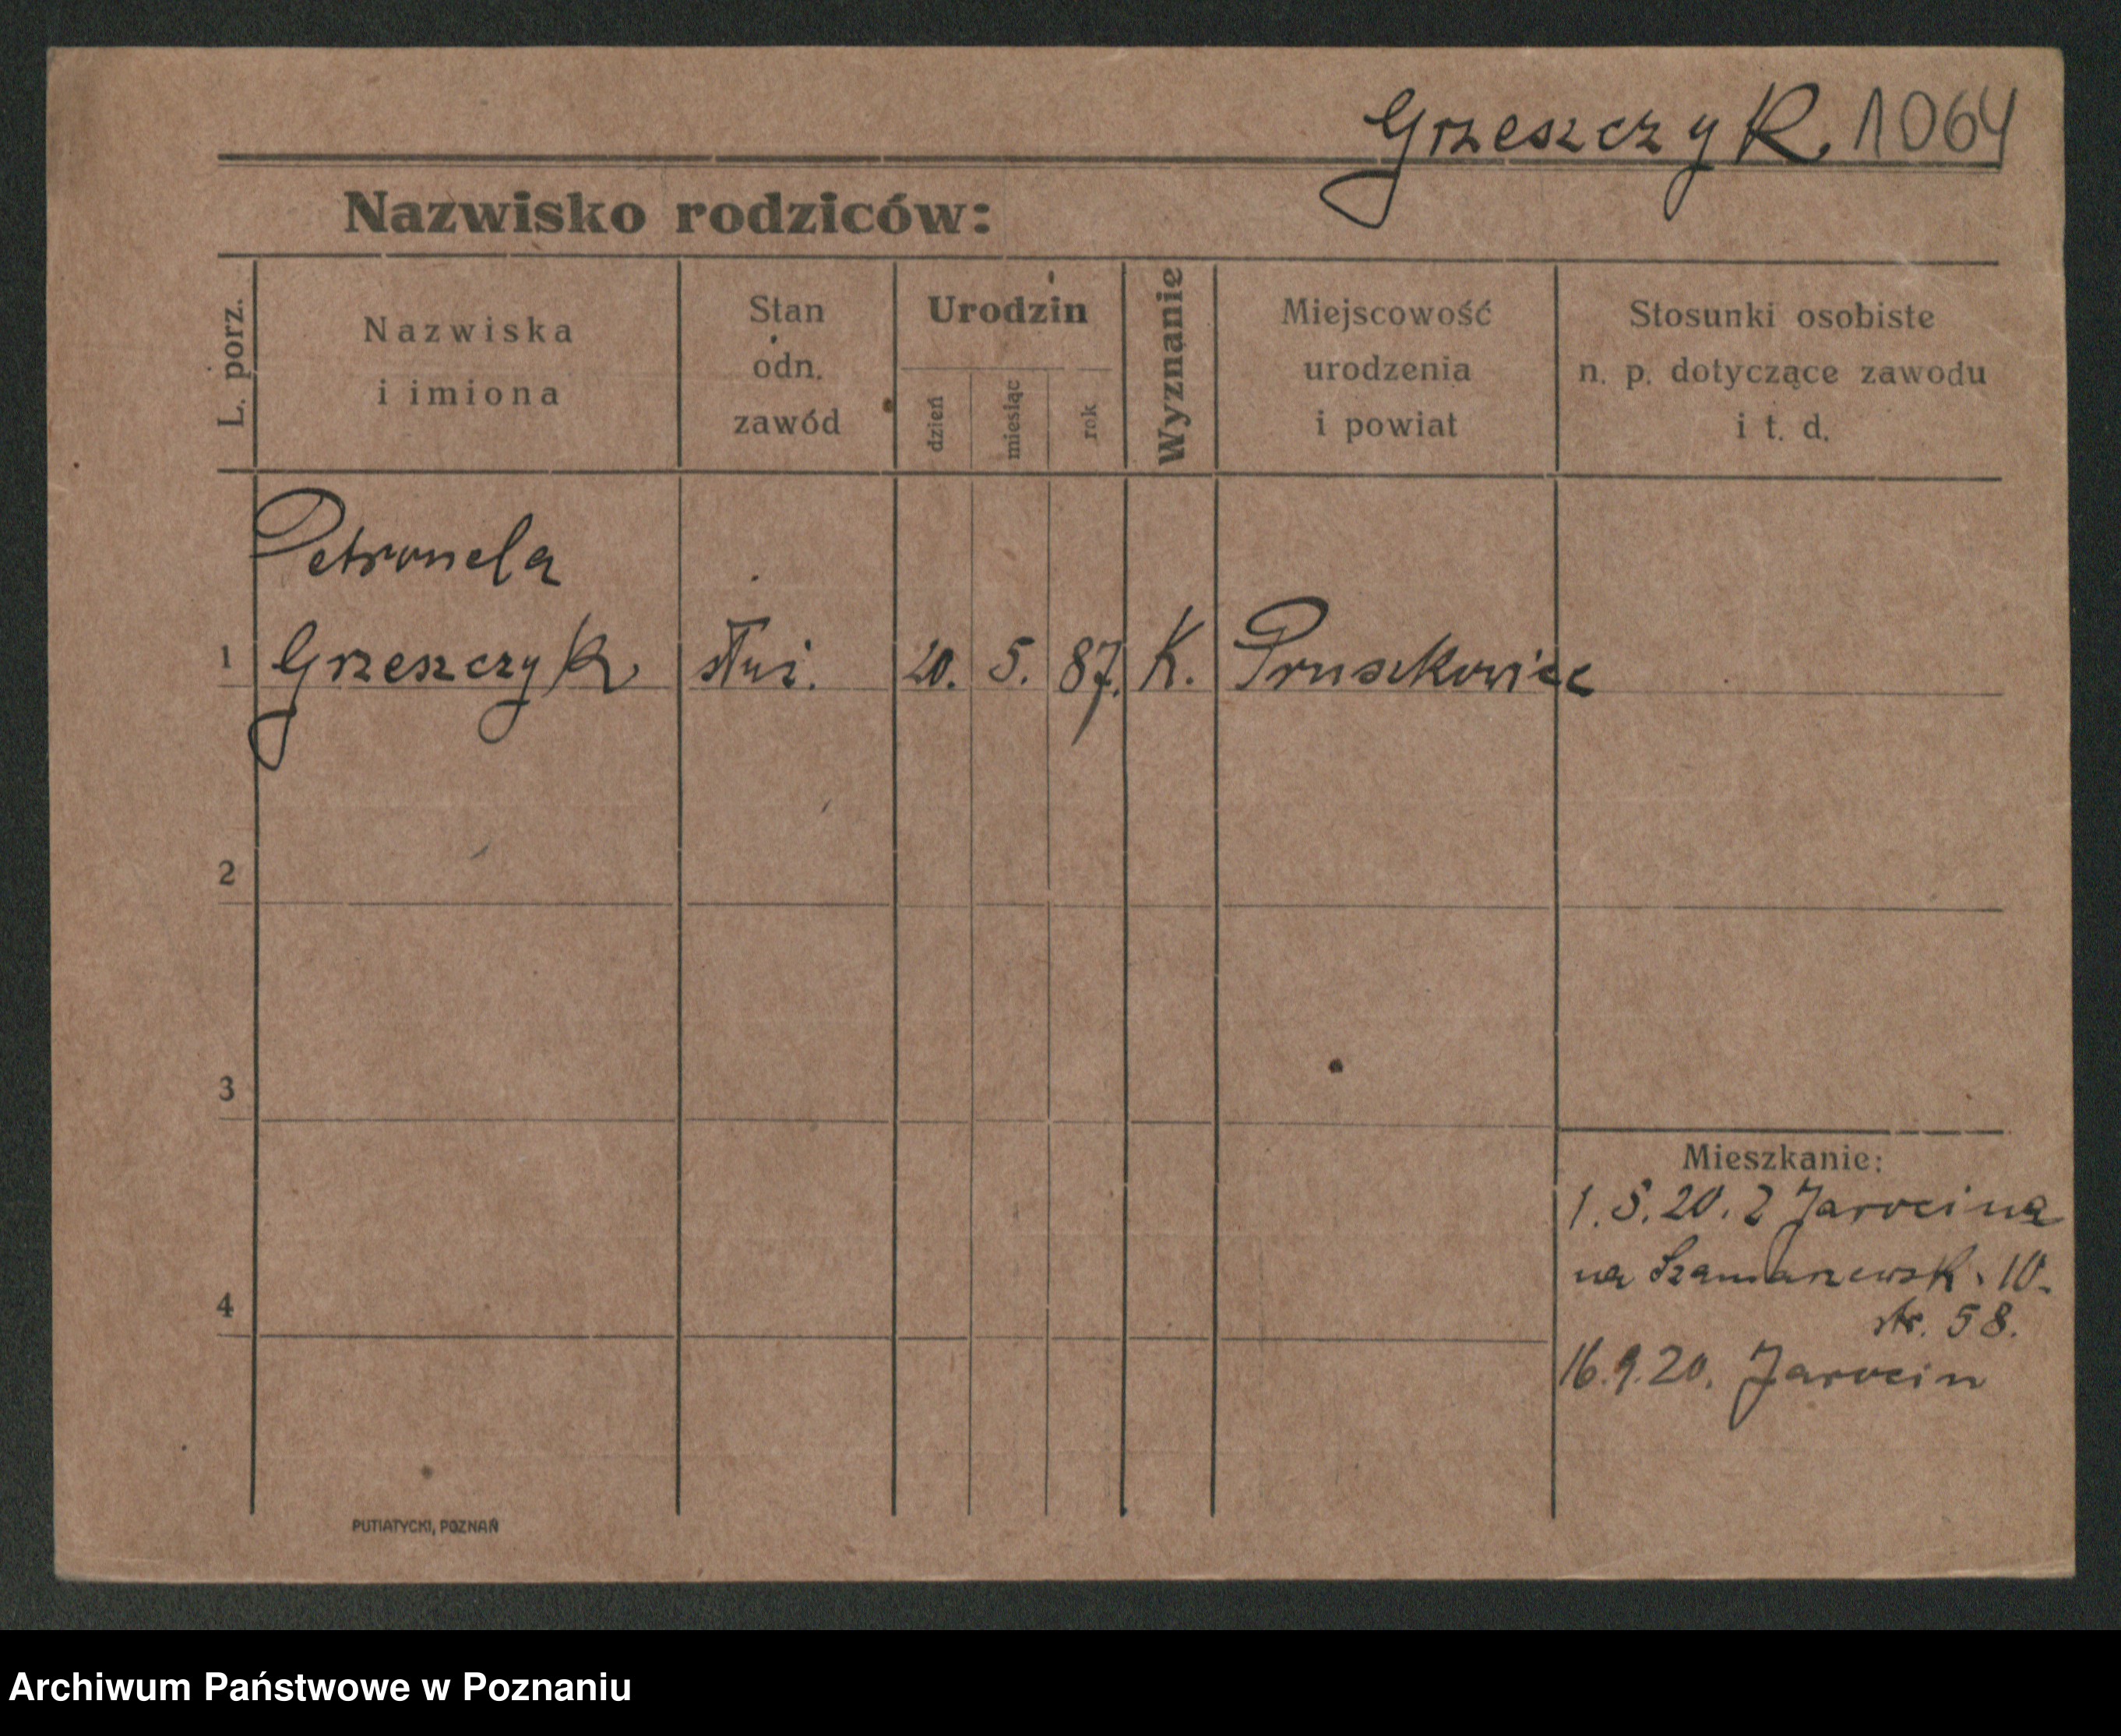 Grzeszczyk. 1064
Nazwisko rodziców:
L. porz.
Nazwiska
i imiona
Stan
odn.
zawód
Urodzin
dzień
miesiąc
rok
Wyznanie
Miejscowość
urodzenia
i powiat
Stosunki osobiste
n. p. dotyczące zawodu
i t. d.
Petronela
1 Grzeszczyk służ. 20. 5. 87. K. Pruszkowiec
2
3
Mieszkanie:
1.5.20. z Jarocina
na 10.
str. 58.
4
16.9.20. Jarocin
PUTIATYCKI, POZNAŃ
Archiwum Państwowe w Poznaniu